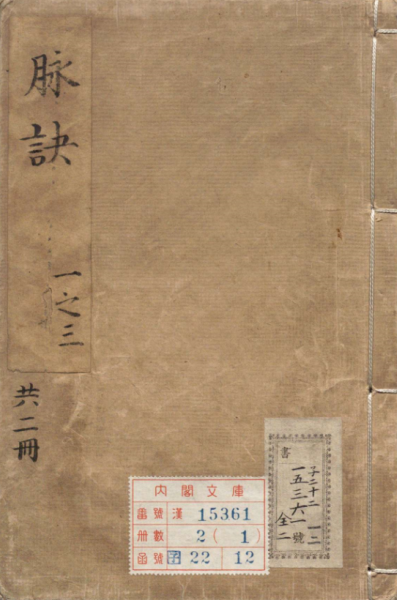 脉訣
一之三
共二冊
内閣文庫
番號 漢 15361
册數 2 (1)
函號 子 22 12
書
子二十二
一二
一五三六一號
全二